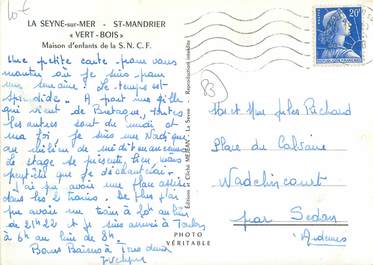 10f
LA SEYNE-sur-MER - ST-MANDRIER
« VERT-BOIS »
Maison d'enfants de la S. N. C. F.
Une petite carte pour vous
montrer où je suis pour
une semaine. Le temps est
splendide. A part une fille
qui vient de Bretagne, toutes
les autres sont du midi et
ma foi, je suis une Nordique
au milieu de méditerranéennes
Le stage se présente bien, mais
peut-être que je déchanterai.
J'ai pu avoir une place assise
dans les 2 trains. De plus j'ai
pu avoir un train à 20h au lieu
de 21h22 et je suis arrivée à Toulon
à 6h au lieu de 8h.
Bons Baisers à Tous deux
Evelyne
Editions et Cliché MEJEAN - La Seyne - Reproduction interdite
PHOTO
VÉRITABLE
83
20F
POSTES
Mr et Mme Jules Richard
Place du Calvaire
Wadelincourt
par Sedan
Ardennes